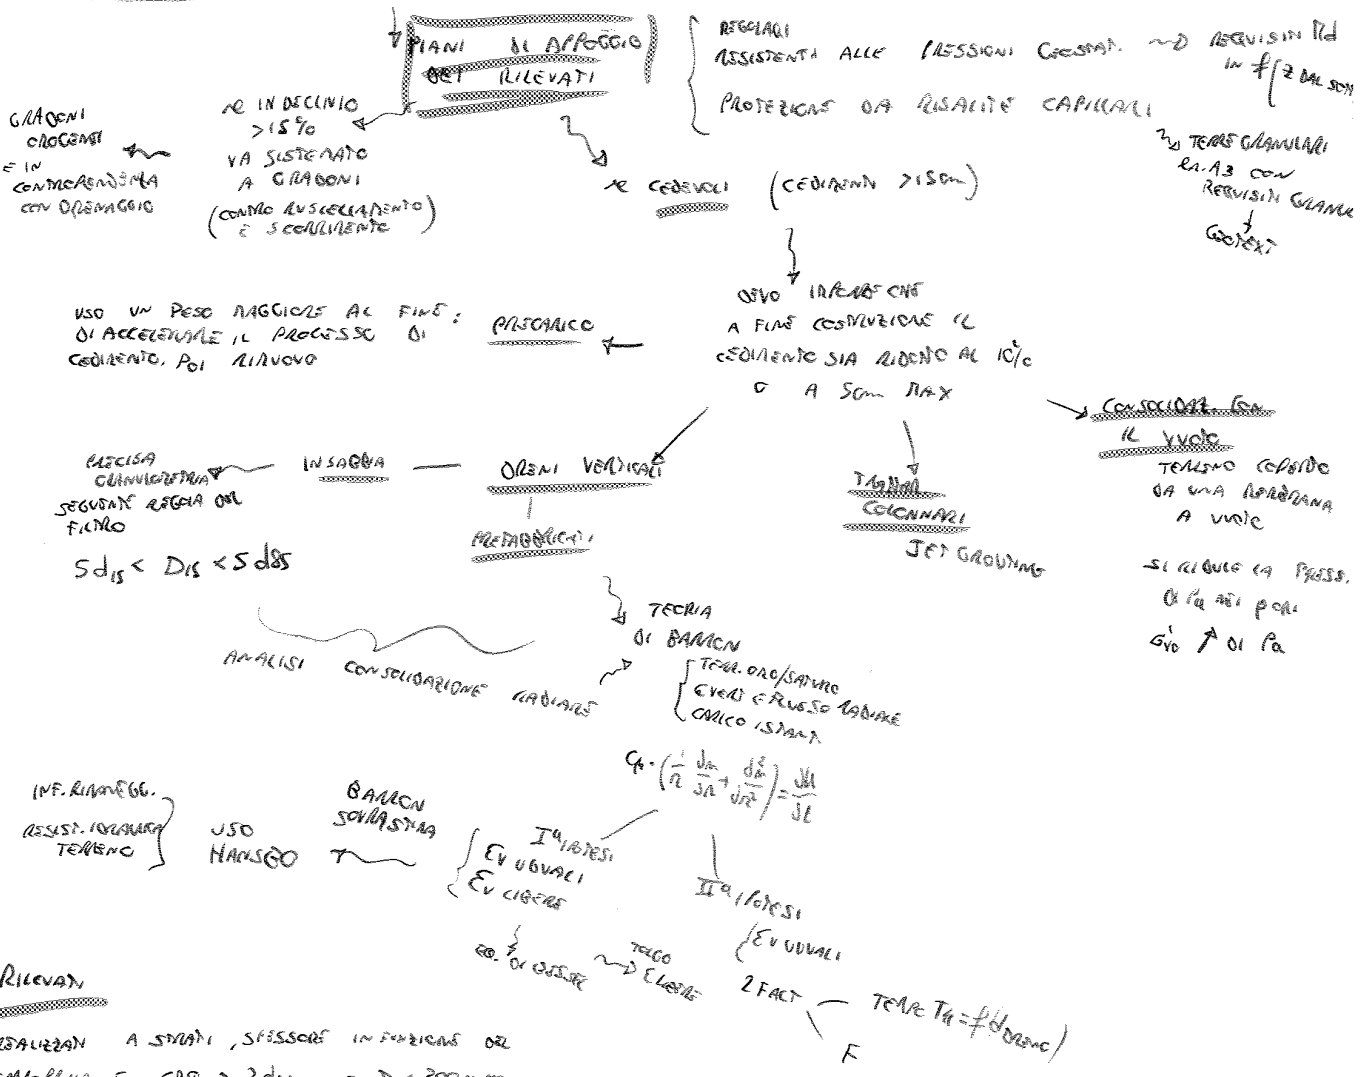 PIANI DI APPOGGIO
DEI RILEVATI
REGOLARI
RESISTENTI ALLE PRESSIONI GEOSTAT. → REQUISITI Md
IN f(Z DAL SOM
PROTEZIONE DA RISALITE CAPILLARI
TERRE GRANULARI
A3 CON
REQUISITI GRANUL
GEOTEXT
SE IN DECLIVIO
>15%
VA SISTEMATO
A GRADONI
(CONTRO RUSCELLAMENTO
E SCORRIMENTO)
GRADONI
E IN
CONTROPENDENZA
CON DRENAGGIO
SE CEDEVOLI (CEDIMENTI >15cm)
DEVO IMPORRE CHE
A FINE COSTRUZIONE IL
CEDIMENTO SIA RIDOTTO AL 10%
O A 5cm MAX
PRECARICO
USO UN PESO MAGGIORE AL FINE
DI ACCELERARE IL PROCESSO DI
CEDIMENTO. POI RIMUOVO
CONSOLIDAZ. CON
IL VUOTO
TERRENO COPERTO
DA UNA MEMBRANA
A VUOTO
SI RIDUCE LA PRESS.
DI Pa NEI PORI
↑ DI Pa
DRENI VERTICALI
IN SABBIA
PRECISA
GRANULOMETRIA
SEGUENTE REGOLA DEL
FILTRO
5d15 < D15 < 5d85
PREFABBRICATI
COLONNARI
JET GROUTING
TEORIA
DI BARRON
TERR. OMO/SATURO
E VERT E FLUSSO RADIALE
CARICO ISTANT.
ANALISI CONSOLIDAZIONE RADIALE
Iª IPOTESI
EV UGUALI
EV LIBERE
BARRON
SOVRASTIMA
USO
HANSBO
INF. RIMANEGG.
RESIST. IDRAULICA
TERRENO
IIª IPOTESI
EV UGUALI
EQ. DI BESSEL
TOLGO
E LIBERE
2 FACT
F
RILEVATI
REALIZZATI A STRATI, SPESSORE IN FUNZIONE DEL